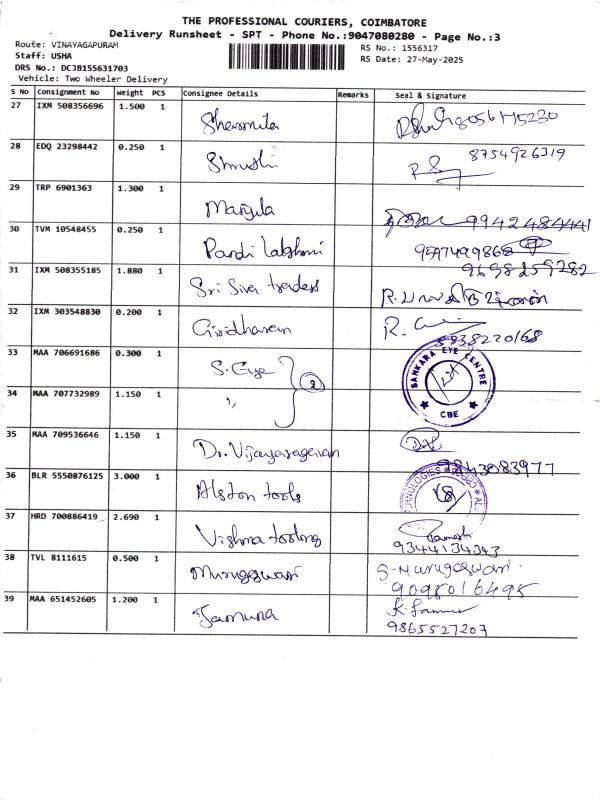 THE PROFESSIONAL COURIERS, COIMBATORE
Delivery Runsheet - SPT - Phone No.:9047080280 - Page No.:3
Route: VINAYAGAPURAM
Staff: USHA
DRS No.: DCJB155631703
Vehicle: Two Wheeler Delivery
RS No.: 1556317
RS Date: 27-May-2025
S No Consignment No Weight PCS Consignee Details Remarks Seal & Signature
27 IXM 508356696 1.500 1 Sharmila
28 EDQ 23298442 0.250 1 Shrushi 8754926319
29 TRP 6901363 1.300 1 Manjula 9942484441
30 TVM 10548455 0.250 1 Pandi lakshmi 9597499868
31 IXM 508355185 1.880 1 Sri Siva traders 9698259282
32 IXM 303548830 0.200 1 Giridharan R.
33 MAA 706691686 0.300 1 S. Eye 2 SANKARA EYE CENTRE CBE
34 MAA 707732989 1.150 1 ,,
35 MAA 709536646 1.150 1 Dr. Vijayaragavan 9843083977
36 BLR 5550876125 3.000 1 Alston tools
37 HRD 700886419 2.690 1 Vishma tooling Ramesh 9344134343
38 TVL 8111615 0.500 1 Murugeswari S-Murugeswari 9098016495
39 MAA 651452605 1.200 1 Jamuna 9865527207